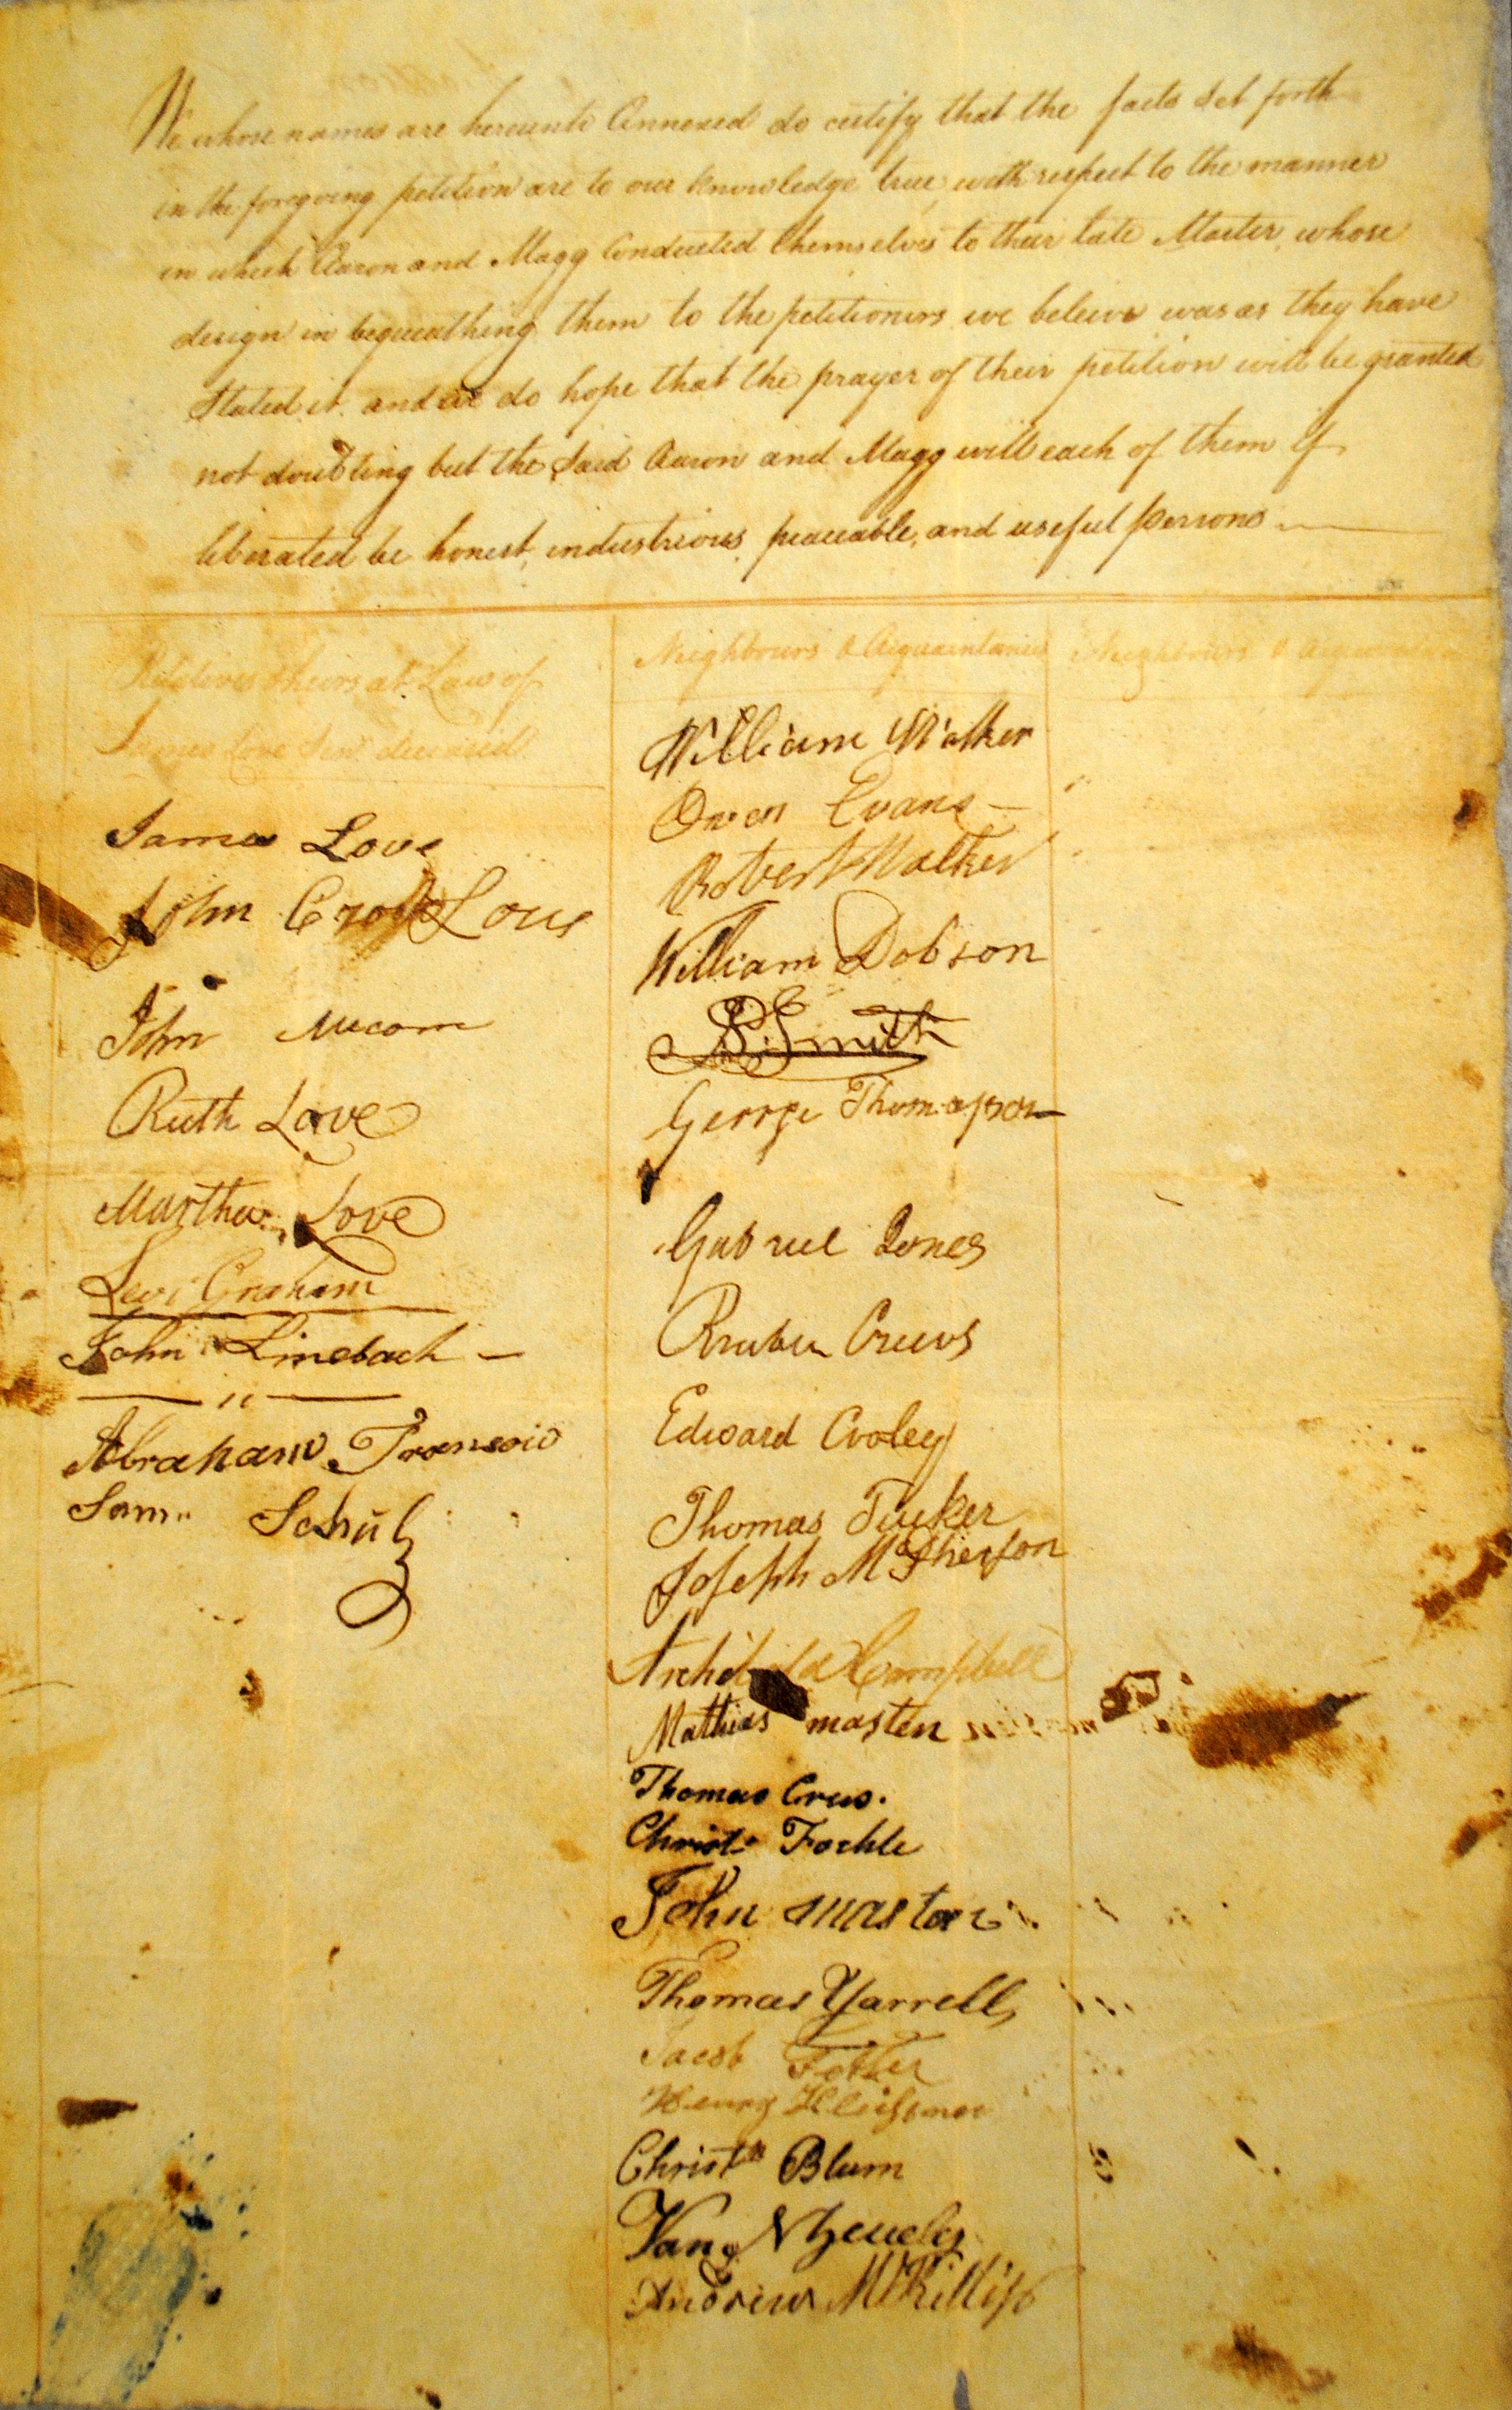 We whose names are hereunto Annexed do certify that the facts set forth
in the foregoing petition are to our knowledge true, with respect to the manner
in which Aaron and Magg Conducted themselves to their late Master, whose
design in bequeathing them to the petitioners we beleive was as they have
Stated it. and we do hope that the prayer of their petition will be granted
not doubting but the Said Aaron and Magg will each of them if
liberated be honest, industrious, peaceable, and useful persons
Relatives & heirs at Law of
James Love Senr deceased
James Love
John Love
John Mecom
Ruth Love
Martha Love
Levi Graham
John Linebach
Abraham Transou
Sam. Schulz
Neighbours & Acquaintances
William Walker
Owen Evans
Robert Walker
William Dobson
Smith
George Thompson
Gabriel Jones
Reuben Crews
Edward Cooley
Thomas Tucker
Joseph McPherson
Archibald Campbell
Mathias masten
Thomas Crus.
Christ
John masten
Thomas Yarrell
Jacob
Henry
Christn Blum
Van N Zevely
Andrew
Neighbours & Acquaintances